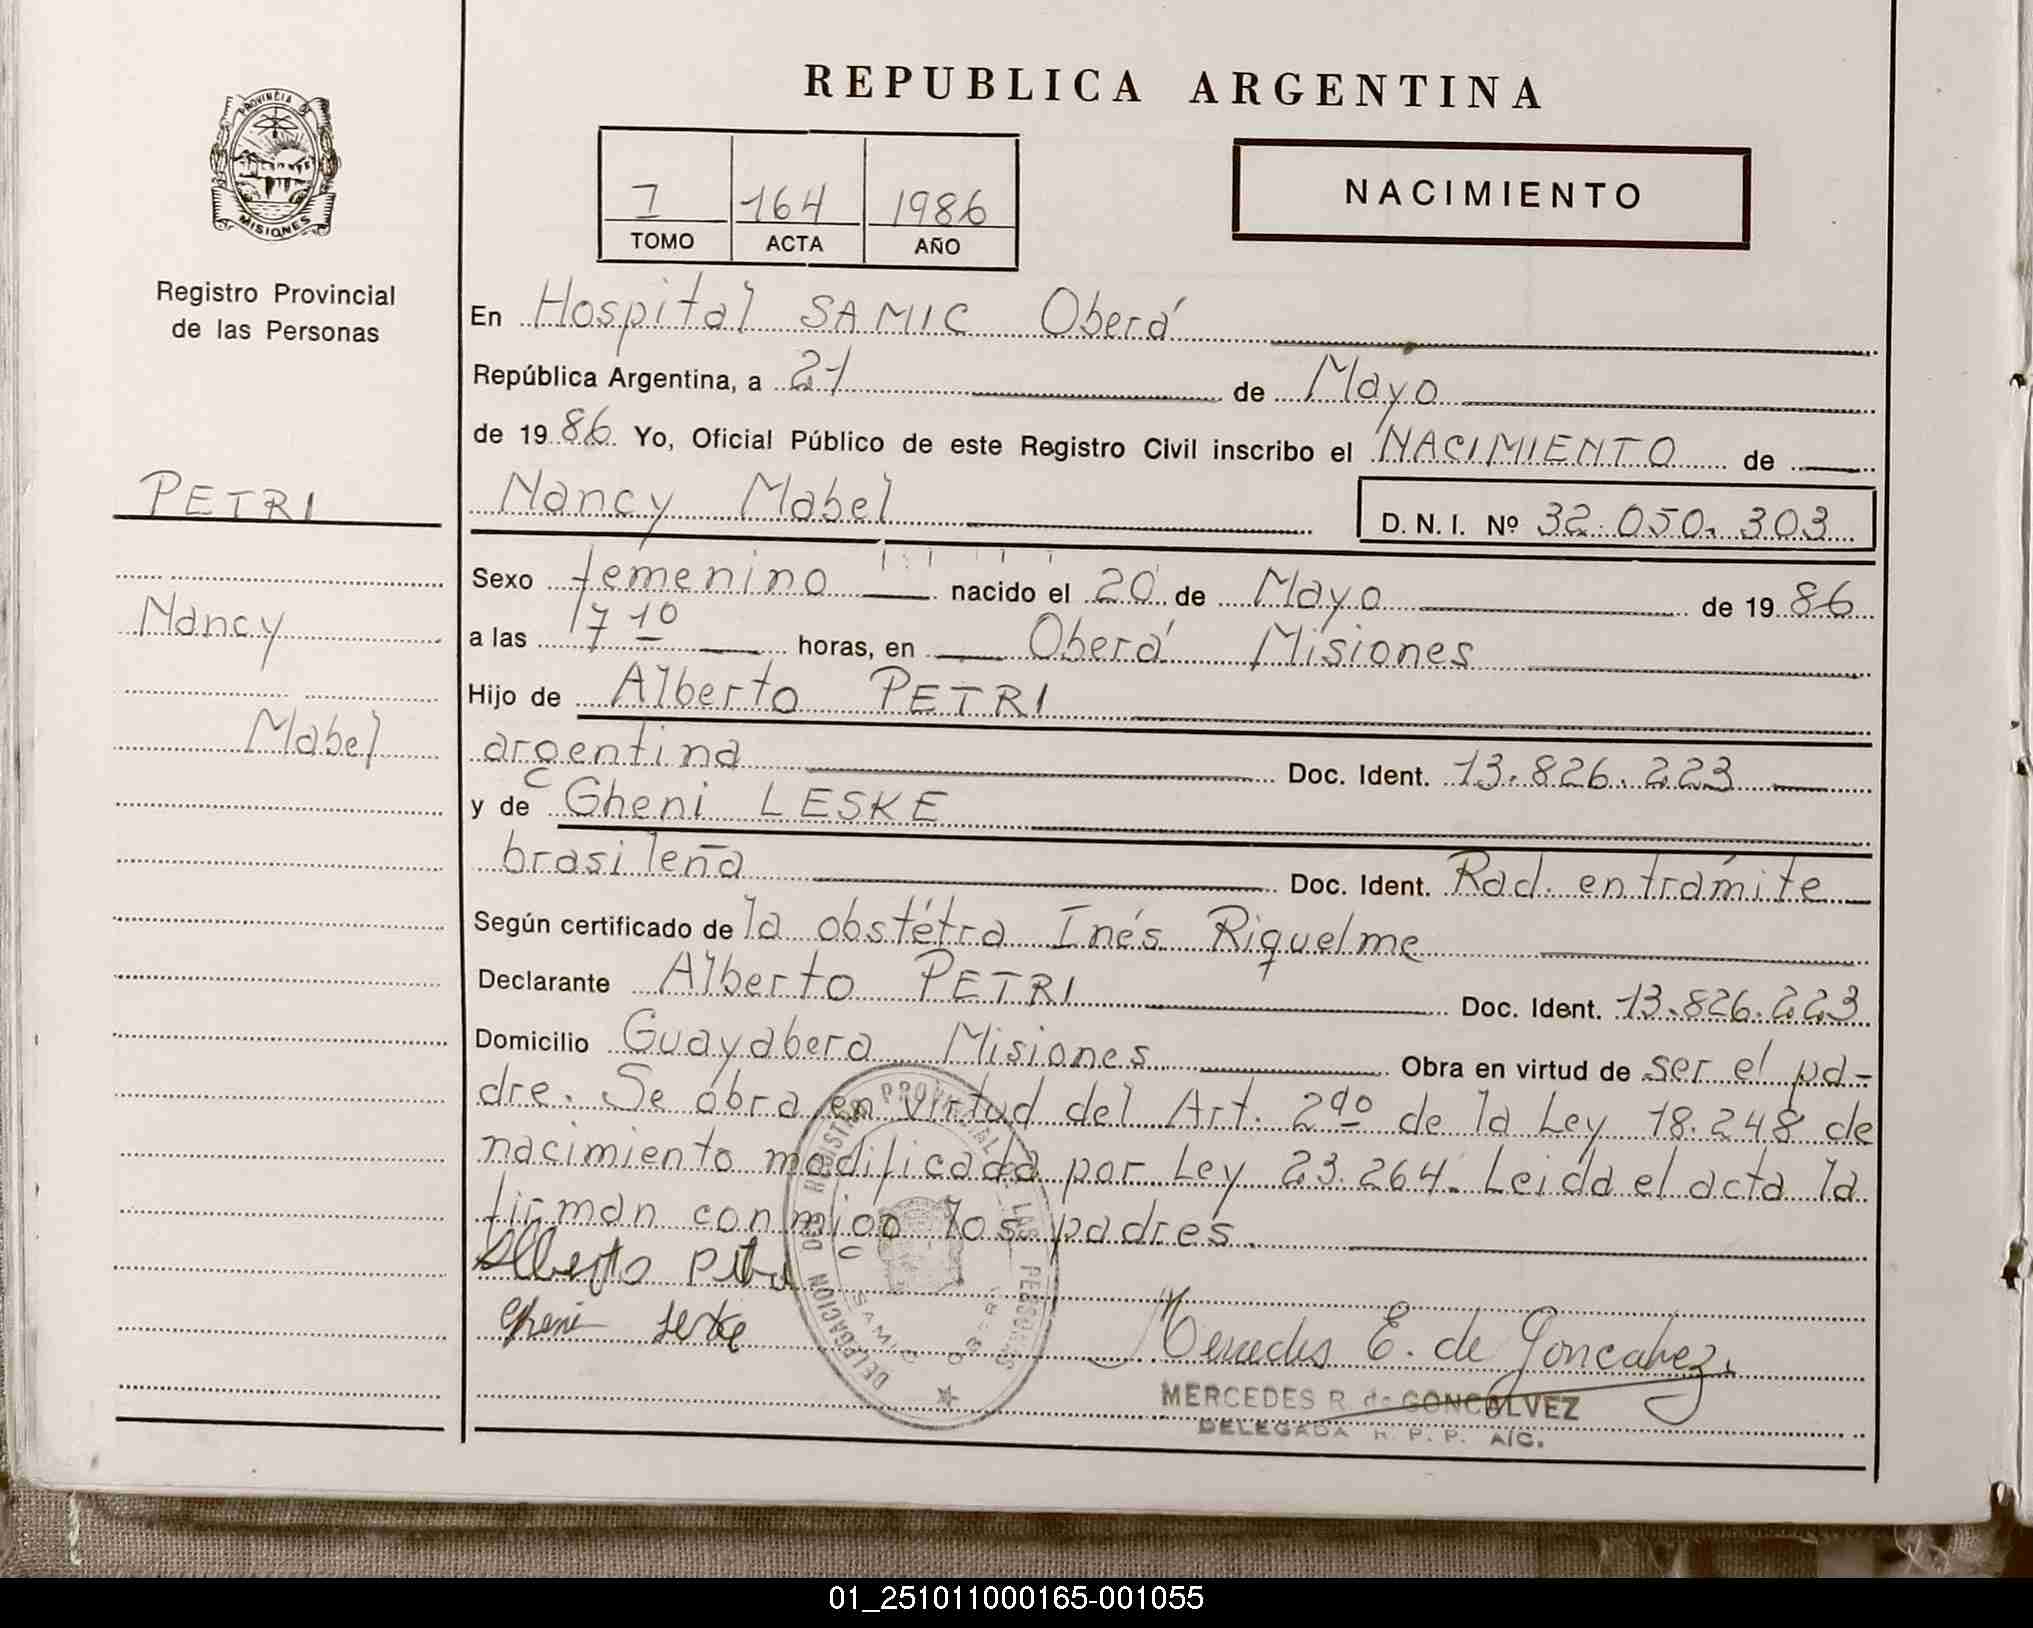 REPUBLICA ARGENTINA
PROVINCIA DE
MISIONES
Registro Provincial
de las Personas
I 164 1986
TOMO ACTA AÑO
NACIMIENTO
En Hospital SAMIC Oberá
República Argentina, a 21 de Mayo
de 1986 Yo, Oficial Público de este Registro Civil inscribo el NACIMIENTO de
PETRI
Nancy Mabel D. N. I. Nº 32.050.303
Sexo femenino nacido el 20 de Mayo de 1986
Nancy
a las 17 10 horas, en Oberá Misiones
Hijo de Alberto PETRI
Mabel
argentina Doc. Ident. 13.826.223
y de Gheni LESKE
brasileña Doc. Ident. Rad. en trámite
Según certificado de la obstétra Inés Riquelme
Declarante Alberto PETRI Doc. Ident. 13.826.223
Domicilio Guayabera Misiones Obra en virtud de ser el pa-
dre. Se obra en virtud del Art. 2do de la Ley 18.248 de
nacimiento modificada por Ley 23.264. Leida el acta la
firman conmigo los padres.
Alberto Petri
Gheni Leske
DELEGACION DEL REGISTRO PROVINCIAL DE LAS PERSONAS
SAMIC OBERA
Mercedes E. de Goncalvez
MERCEDES R. de GONCALVEZ
DELEGADA R. P. P. A/C.
01_251011000165-001055